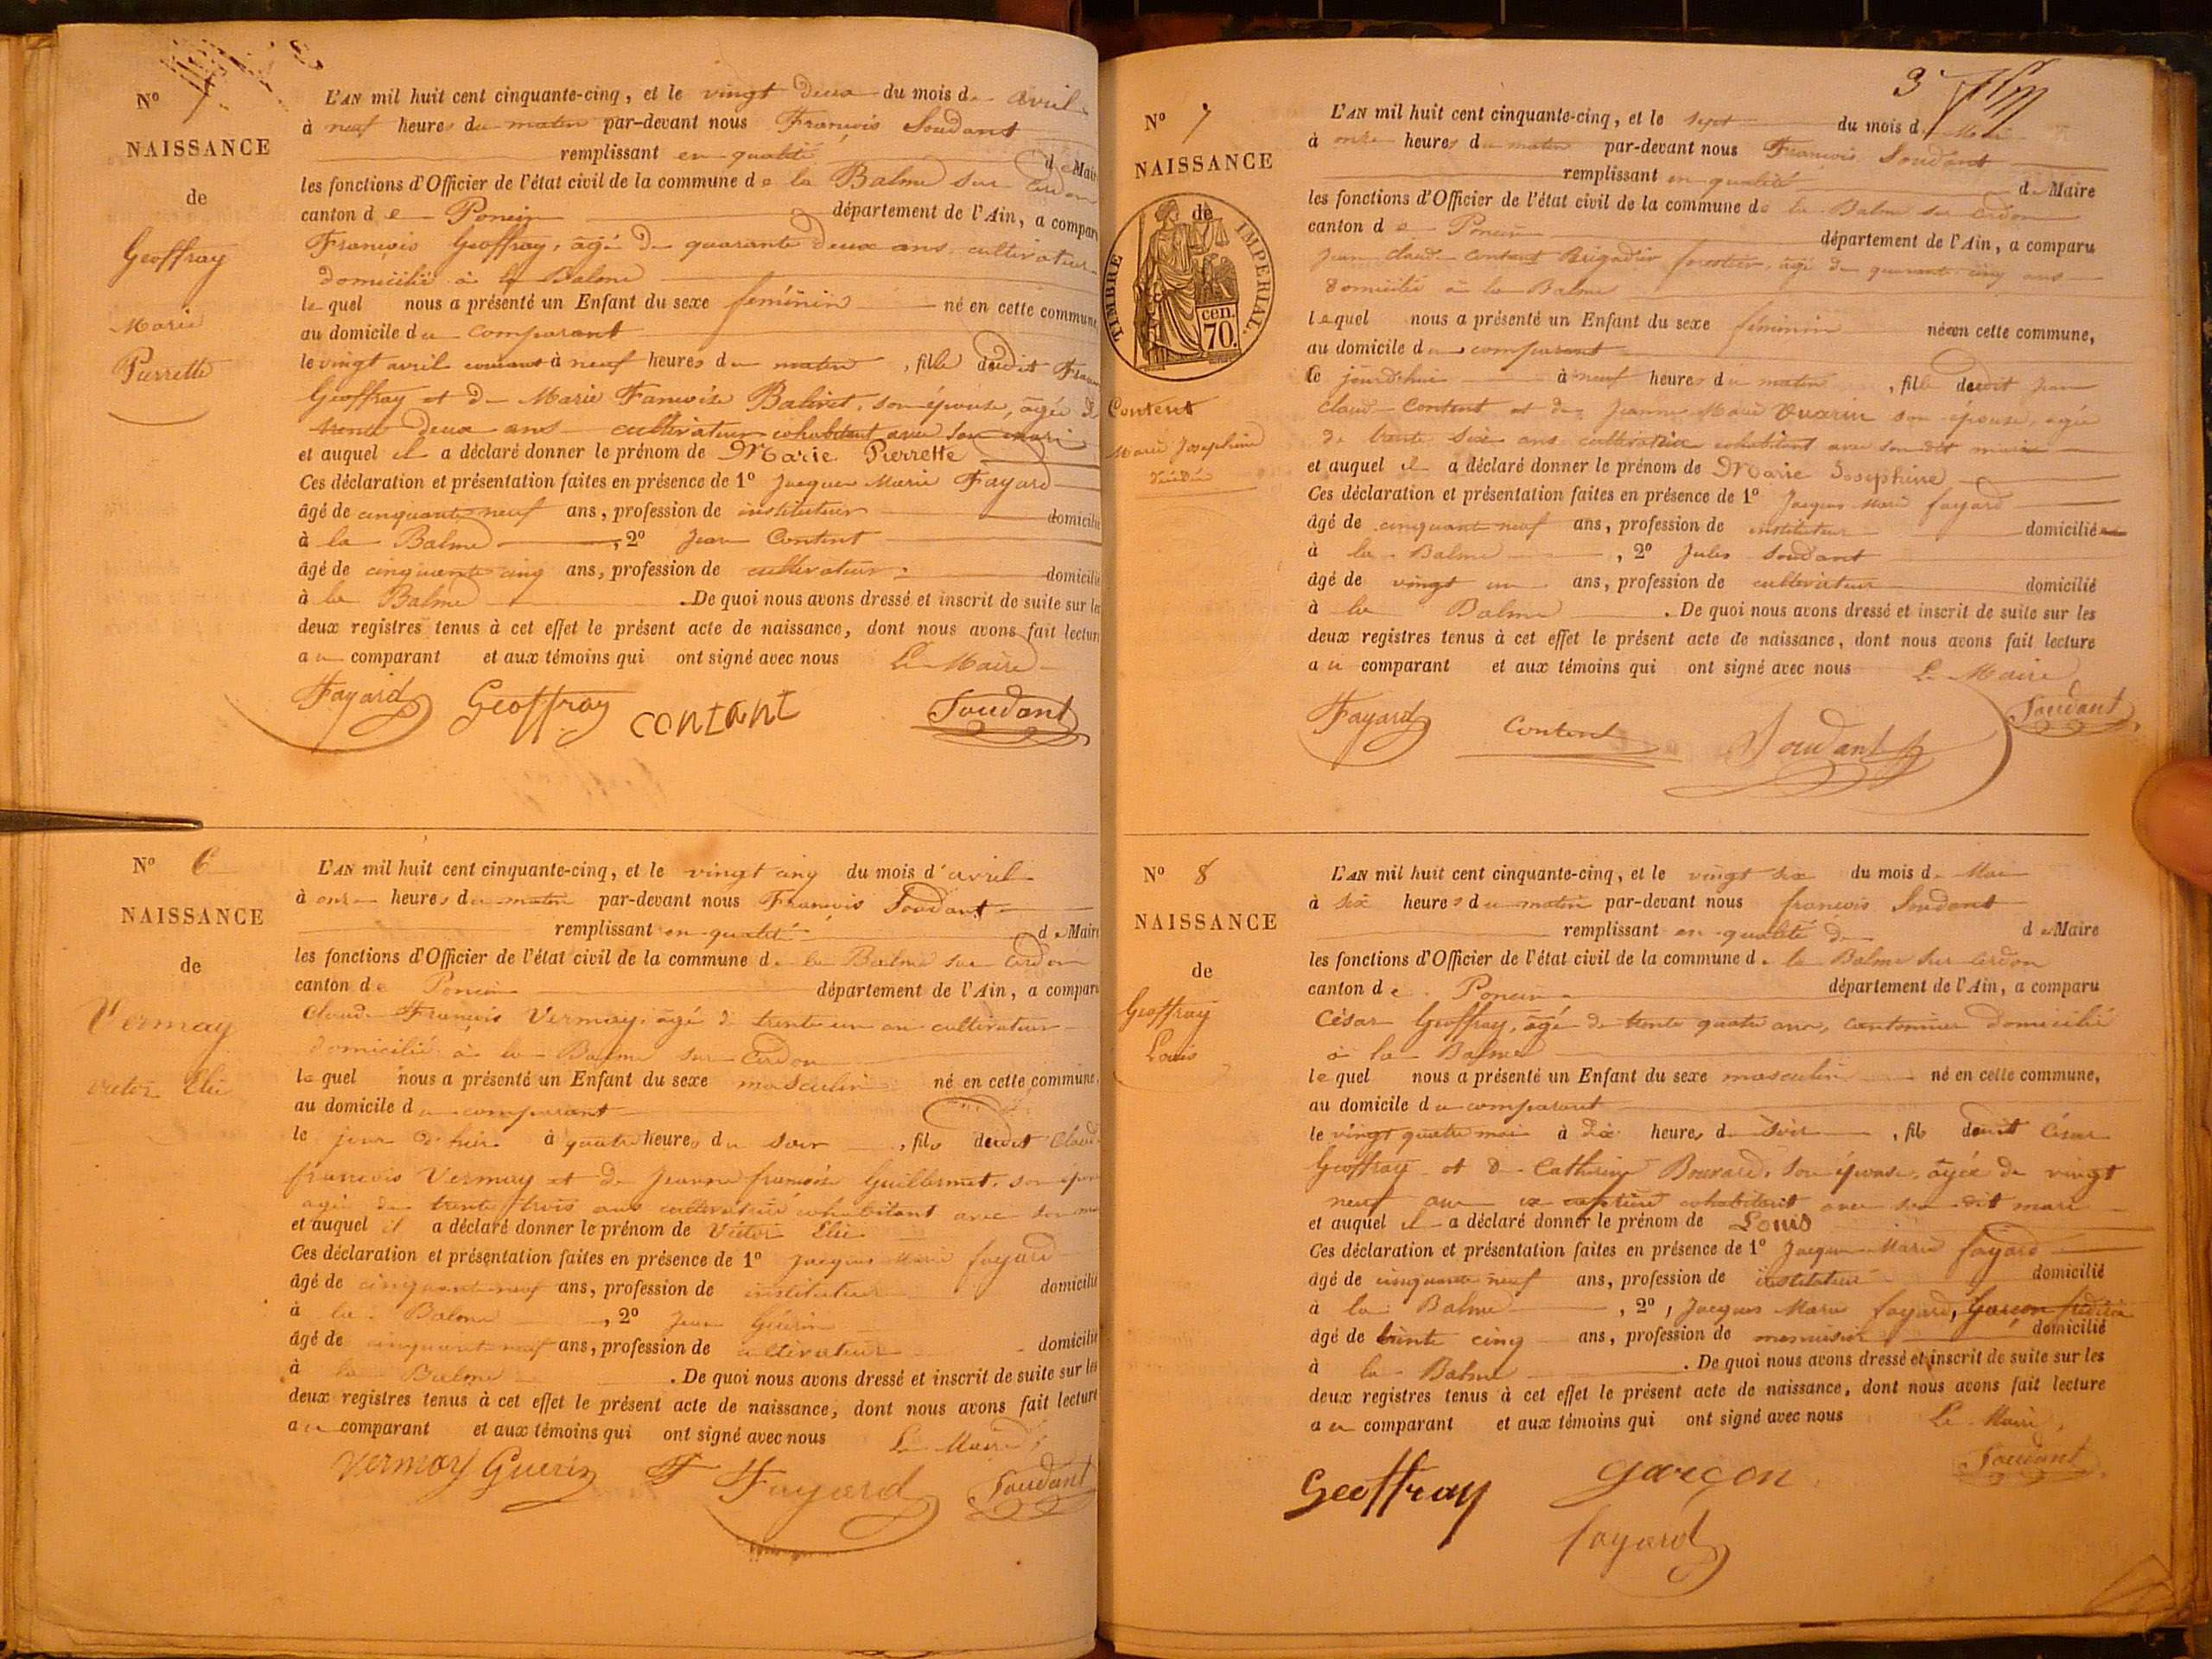 Nº
NAISSANCE
de
Geoffray
Marie
Pierrette
L'AN mil huit cent cinquante-cinq, et le vingt deux du mois d avril
à neuf heures du matin par-devant nous François Soudant
remplissant en qualité de Mair
les fonctions d'Officier de l'état civil de la commune de la Balme sur Cerdon
canton de Poncin département de l'Ain, a compar
François Geoffray, âgé de quarante deux ans, cultivateur
domicilié à la Balme
lequel nous a présenté un Enfant du sexe féminin né en cette commune
au domicile du comparant
le vingt avril courant à neuf heures du matin, fille dudit Fran
Geoffray et de Marie Françoise Balivet, son épouse, âgée de
trente deux ans cultivateur cohabitant avec son mari
et auquel il a déclaré donner le prénom de Marie Pierrette
Ces déclaration et présentation faites en présence de 1º Jacques Marie Fayard
âgé de cinquante neuf ans, profession de instituteur domicilié
à la Balme, 2º Jean Content
âgé de cinquante cinq ans, profession de cultivateur domicilié
à la Balme. De quoi nous avons dressé et inscrit de suite sur les
deux registres tenus à cet effet le présent acte de naissance, dont nous avons fait lecture
au comparant et aux témoins qui ont signé avec nous Le Maire
Fayard Geoffray contant Soudant
Nº 6
NAISSANCE
de
Vermay
Victor Elie
L'AN mil huit cent cinquante-cinq, et le vingt cinq du mois d'avril
à onze heures du matin par-devant nous François Soudant
remplissant en qualité de Maire
les fonctions d'Officier de l'état civil de la commune de la Balme sur Cerdon
canton de Poncin département de l'Ain, a compar
Claude François Vermay, âgé de trente un an cultivateur
domicilié à la Balme sur Cerdon
lequel nous a présenté un Enfant du sexe masculin né en cette commune,
au domicile du comparant
le jour d'hier à quatre heures du soir, fils dudit Claude
françois Vermay et de Jeanne françoise Guillermet, son épou
agée de trente trois ans cultivatrice cohabitant avec son ma
et auquel il a déclaré donner le prénom de Victor Elie
Ces déclaration et présentation faites en présence de 1º Jacques Marie fayard
âgé de cinquante neuf ans, profession de instituteur domicilié
à la Balme, 2º Jean Guérin
âgé de cinquante neuf ans, profession de cultivateur domicilié
à la Balme. De quoi nous avons dressé et inscrit de suite sur les
deux registres tenus à cet effet le présent acte de naissance, dont nous avons fait lecture
au comparant et aux témoins qui ont signé avec nous Le Maire,
Vermay Guerin Fayard Soudant
3
Nº 7
NAISSANCE
de
TIMBRE IMPÉRIAL.
cen.
70.
Content
Marie Josephine
L'AN mil huit cent cinquante-cinq, et le sept du mois d Mai
à onze heures du matin par-devant nous François Soudant
remplissant en qualité de Maire
les fonctions d'Officier de l'état civil de la commune de la Balme sur Cerdon
canton de Poncin département de l'Ain, a comparu
Jean claude Content Brigadier forestier, âgé de quarante cinq ans
domicilié à la Balme
lequel nous a présenté un Enfant du sexe féminin né en cette commune,
au domicile du comparant
le jourd'hui à neuf heures du matin, fille dudit Jean
claude Content et de Jeanne Marie son épouse, agée
de trente six ans cultivatrice cohabitant avec son dit mari
et auquel il a déclaré donner le prénom de Marie Josephine
Ces déclaration et présentation faites en présence de 1º Jacques Marie fayard
âgé de cinquante neuf ans, profession de instituteur domicilié
à la Balme, 2º Jules Soudant
âgé de vingt un ans, profession de cultivateur domicilié
à la Balme. De quoi nous avons dressé et inscrit de suite sur les
deux registres tenus à cet effet le présent acte de naissance, dont nous avons fait lecture
au comparant et aux témoins qui ont signé avec nous Le Maire,
Fayard Content Soudant Soudant
Nº 8
NAISSANCE
de
Geoffray
Louis
L'AN mil huit cent cinquante-cinq, et le vingt six du mois de Mai
à six heures du matin par-devant nous françois Soudant
remplissant en qualité de de Maire
les fonctions d'Officier de l'état civil de la commune de la Balme sur Cerdon
canton de Poncin département de l'Ain, a comparu
César Geoffray, âgé de trente quatre ans, cantonnier domicilié
à la Balme
lequel nous a présenté un Enfant du sexe masculin né en cette commune,
au domicile du comparant
le vingt quatre mai à dix heures du soir, fils dudit César
Geoffray et de Catherine Bouvard, son épouse, agée de vingt
neuf ans cohabitant avec son dit mari
et auquel il a déclaré donner le prénom de Louis
Ces déclaration et présentation faites en présence de 1º Jacques Marie fayard
âgé de cinquante neuf ans, profession de instituteur domicilié
à la Balme, 2º, Jacques Marie fayard, Garçon
âgé de trente cinq ans, profession de menuisier domicilié
à la Balme. De quoi nous avons dressé et inscrit de suite sur les
deux registres tenus à cet effet le présent acte de naissance, dont nous avons fait lecture
au comparant et aux témoins qui ont signé avec nous Le Maire,
Geoffray garçon Soudant
fayard